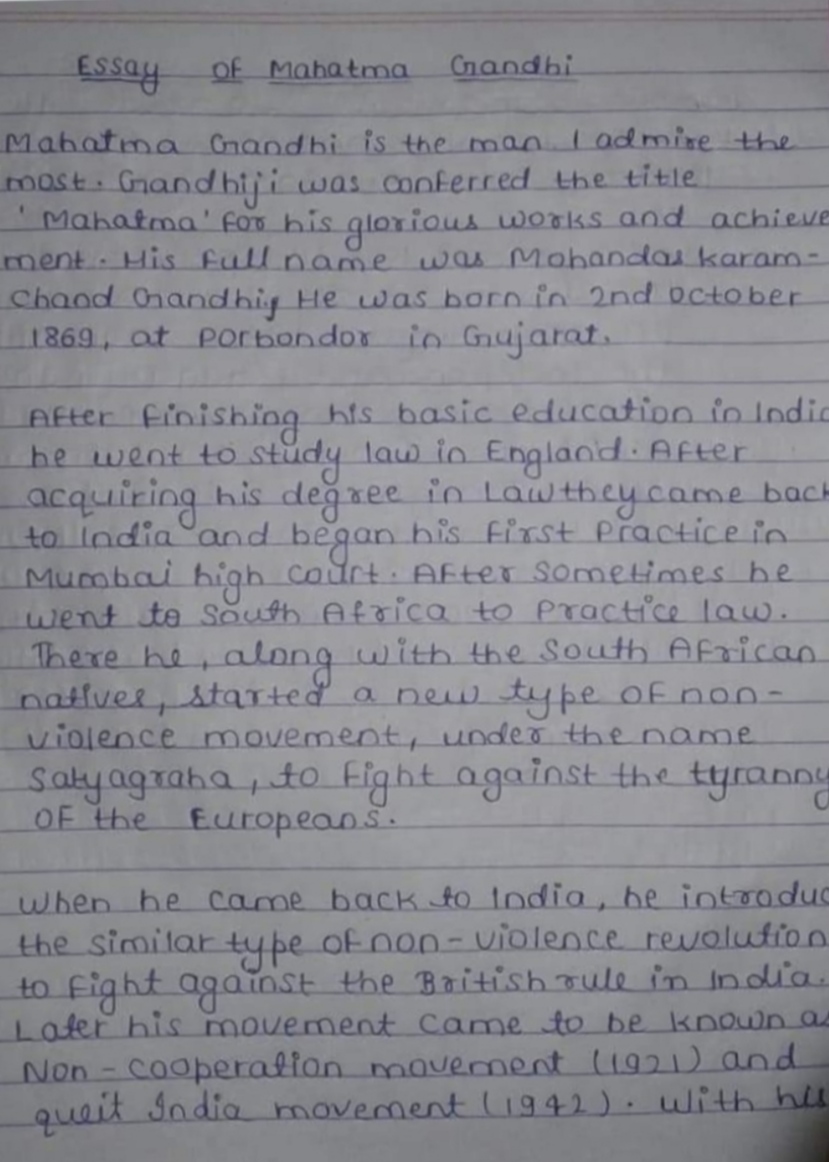 Essay of Mahatma Gandhi
Mahatma Gandhi is the man I admire the
most. Gandhiji was conferred the title
'Mahatma' for his glorious works and achieve
ment. His full name was Mohandas Karam-
chand Gandhi, He was born in 2nd october
1869, at porbondor in Gujarat.
After finishing his basic education in Indi
he went to study law in England. After
acquiring his degree in Law they came back
to India and began his first practice in
Mumbai high court. After sometimes he
went to South Africa to practice law.
There he, along with the South African
natives, started a new type of non-
violence movement, under the name
Satyagraha, to fight against the tyranny
of the Europeans.
When he came back to India, he introduc
the similar type of non-violence revolution
to fight against the British rule in India.
Later his movement came to be known as
Non-cooperation movement (1921) and
queit India movement (1942). With his